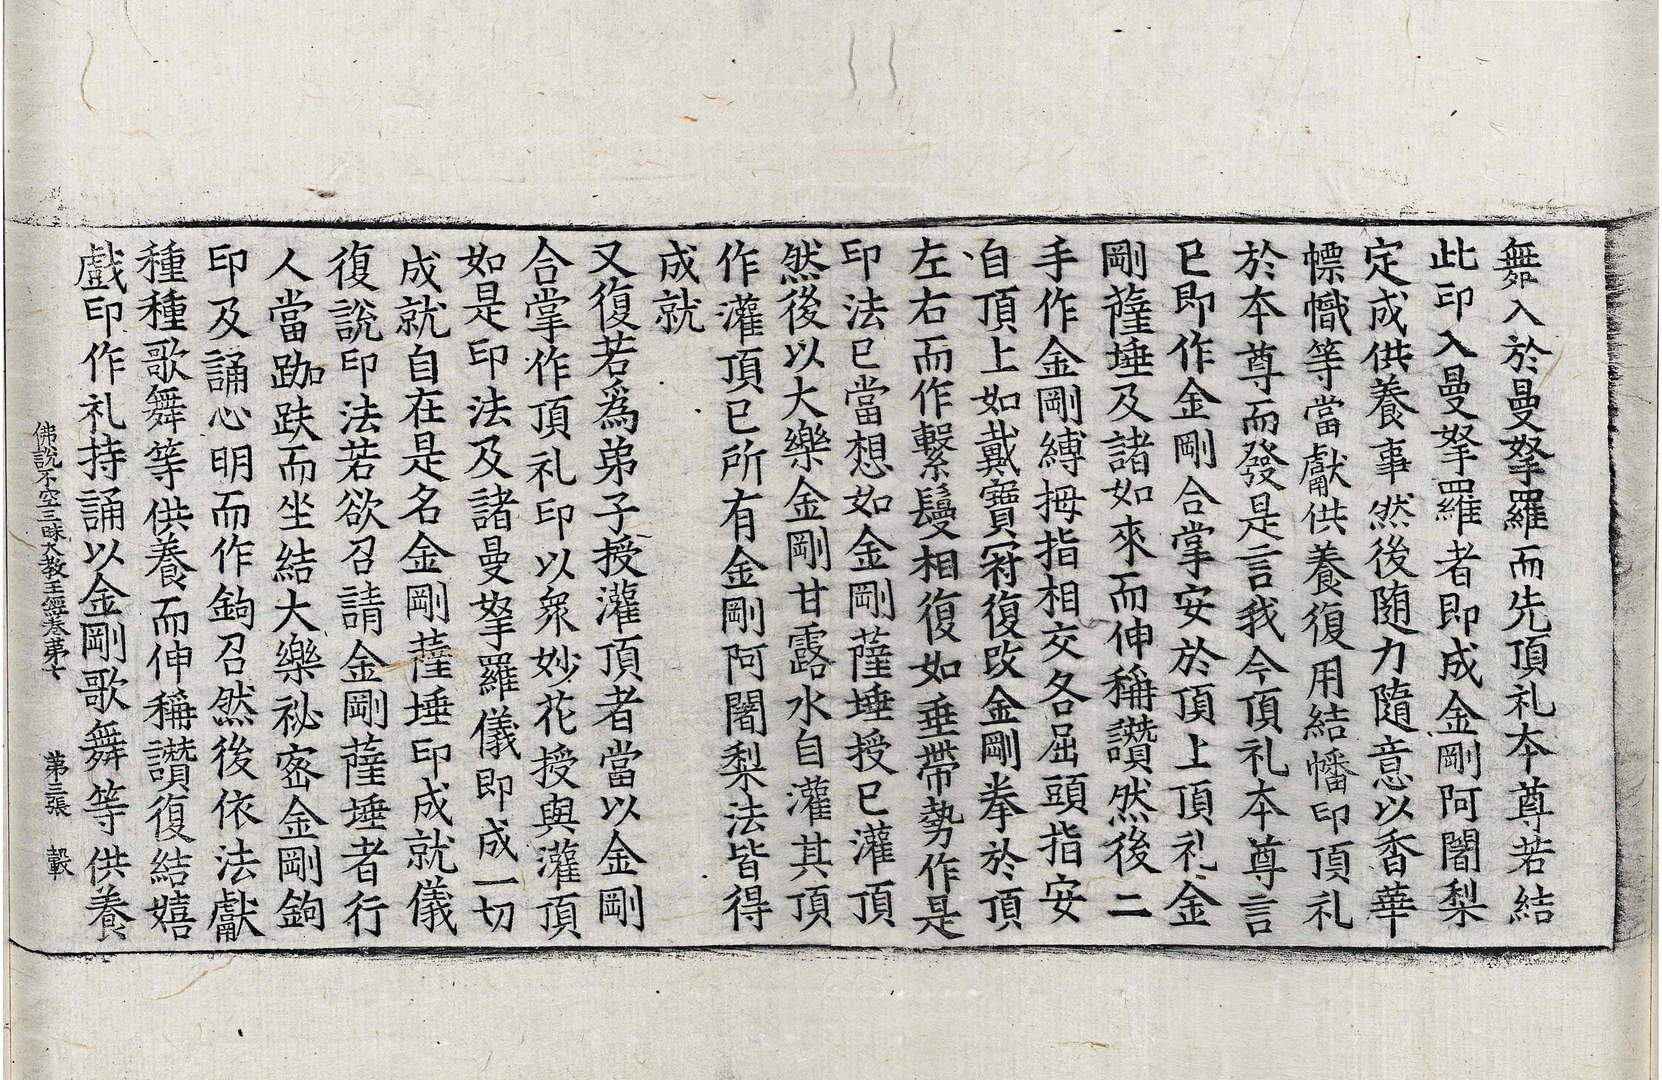 舞入於曼拏羅而先頂礼本尊若結
此印入曼拏羅者即成金剛阿闍梨
定成供養事然後随力隨意以香華
幖幟等當獻供養復用結幡印頂礼
於本尊而發是言我今頂礼本尊言
已即作金剛合掌安於頂上頂礼金
剛薩埵及諸如來而伸稱讚然後二
手作金剛縛拇指相交各屈頭指安
自頂上如戴寶冠復改金剛拳於頂
左右而作繫鬘相復如垂帶勢作是
印法已當想如金剛薩埵授已灌頂
然後以大樂金剛甘露水自灌其頂
作灌頂已所有金剛阿闍梨法皆得
成就
又復若爲弟子授灌頂者當以金剛
合掌作頂礼印以衆妙花授與灌頂
如是印法及諸曼拏羅儀即成一切
成就自在是名金剛薩埵印成就儀
復說印法若欲召請金剛薩埵者行
人當跏趺而坐結大樂祕密金剛鉤
印及誦心明而作鉤召然後依法獻
種種歌舞等供養而伸稱讚復結嬉
戲印作礼持誦以金剛歌舞等供養
佛說不空三昧大教王經卷第七　第三張　轂